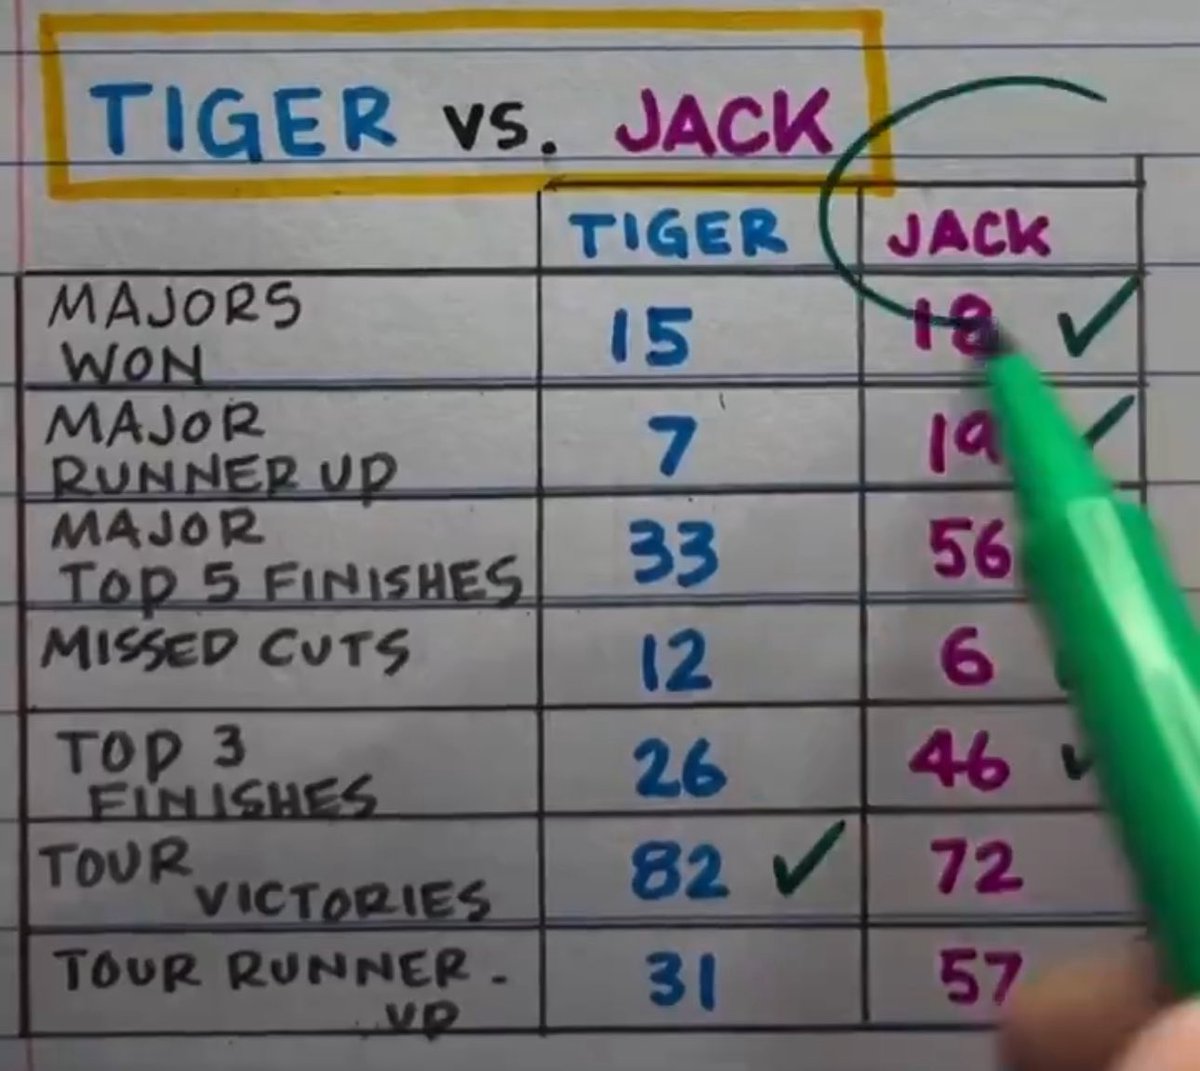 TIGER VS. JACK
TIGER JACK
MAJORS
WON 15 18 ✓
MAJOR
RUNNER UP 7 19 ✓
MAJOR
TOP 5 FINISHES 33 56
MISSED CUTS 12 6
TOP 3
FINISHES 26 46 ✓
TOUR
VICTORIES 82 ✓ 72
TOUR RUNNER -
UP 31 57